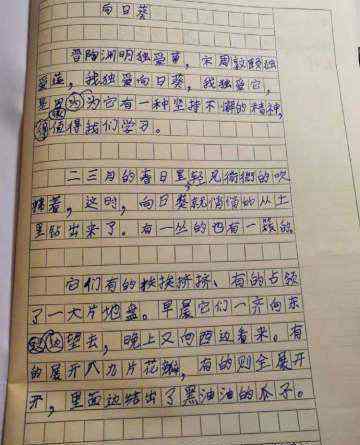 向日葵
晋陶渊明独爱菊,宋周敦颐独
爱莲,我独爱向日葵,我独爱它,
是因为它有一种坚持不懈的精神,
值得我们学习。
二三月的春日里,轻风微微的吹
拂着,这时,向日葵就悄悄的从土
里钻出来了。有一丛的也有一簇的
它们有的挨挨挤挤、有的占领
了一大片地盘。早晨它们一齐向东
望去,晚上又向西边看来。有
的展开八九片花瓣,有的则全展开
开,里面边结出了黑油油的瓜子。